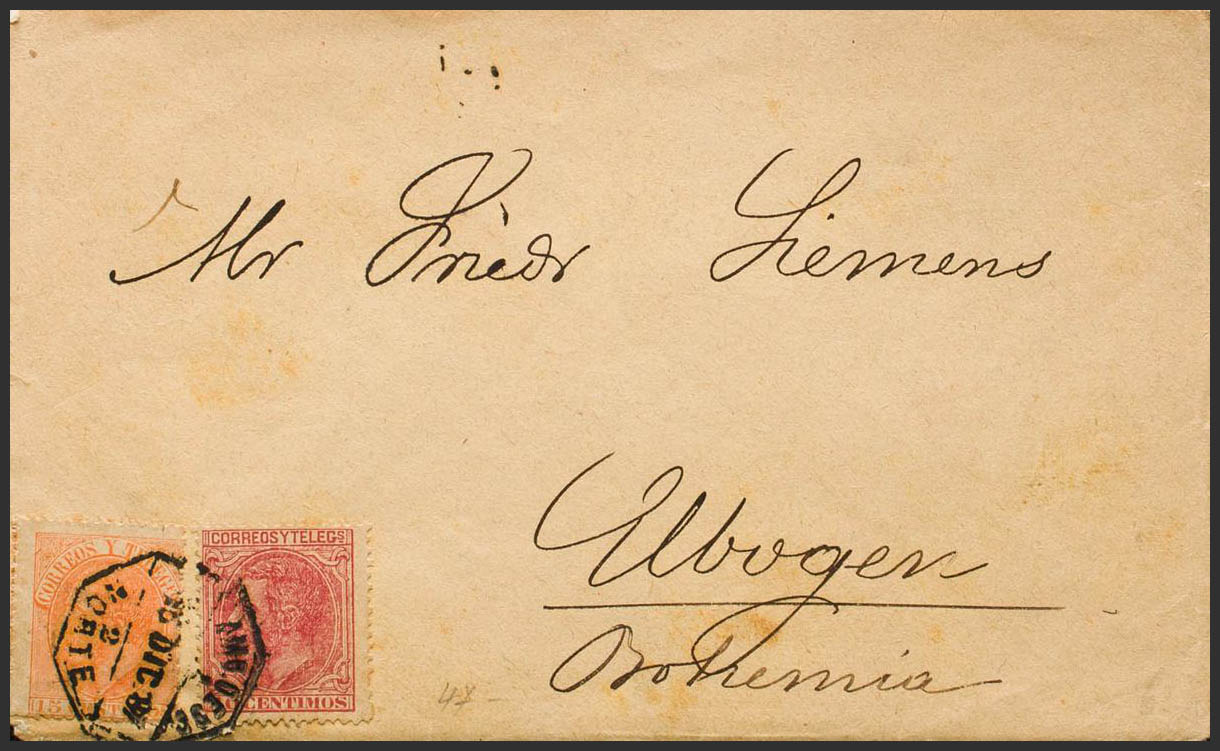 Mr Friedr Siemens
Elbogen
Bohemia
CORREOS Y TELEGS
CENTIMOS
CORREOS Y
15
NORTE
2
DIC
47